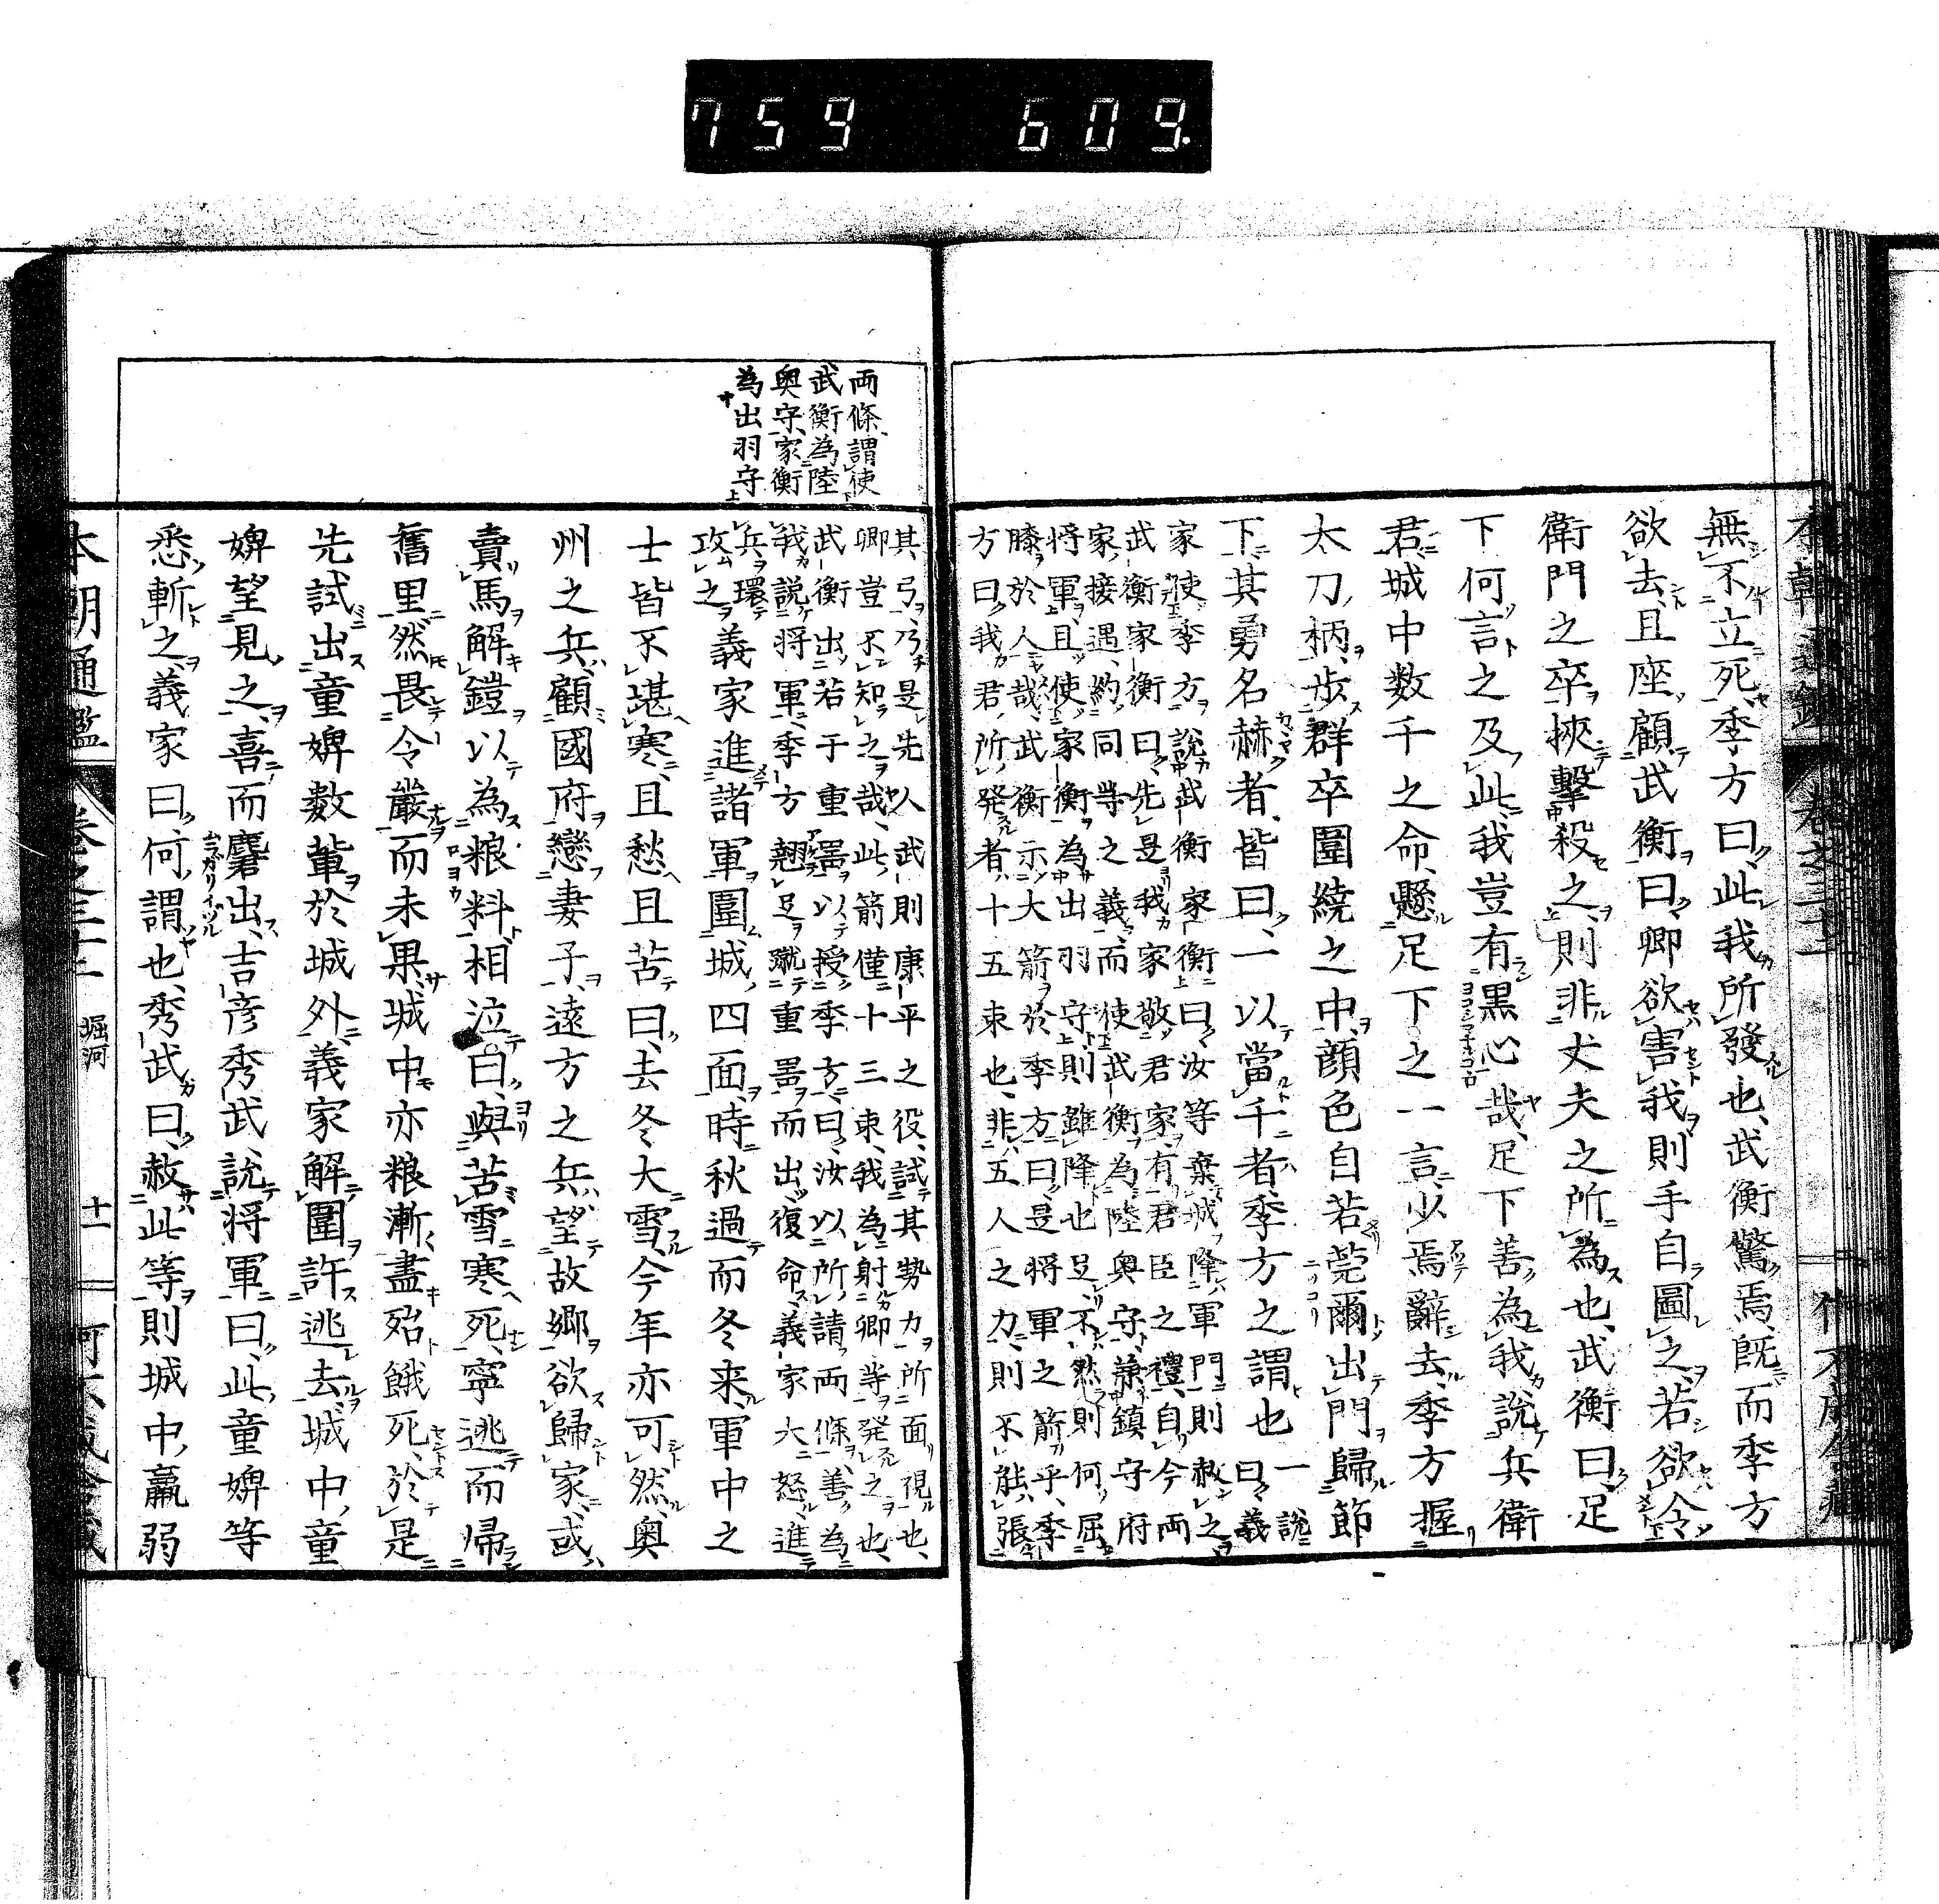 759 609.
無不立死季方曰此我所發也武衡驚焉既而季方
欲去且座顧武衡曰卿欲害我則手自圖之若欲令
衛門之卒挾擊殺之則非丈夫之所為也武衡曰足
下何言之及此我豈有黒心哉足下善為我説兵衛
君城中数千之命懸足下之一言少焉辭去季方握
太刀柄歩群卒圍繞之中顔色自若莞爾出門歸節
下其勇名赫者皆曰一以當千者季方之謂也 一説曰義
家使季方説武衡家衡曰汝等棄城降軍門則赦之
武衡家衡曰先是我家敬君家有君臣之禮自今両
家接遇約同等之義而使武衡為陸奥守兼鎮守府
将軍且使家衡為出羽守則雖降也足不然則何屈
膝於人哉武衡示大箭於季方曰是将軍之箭乎季
方曰我君所発者十五束也非五人之力則不能張
両條謂使
武衡為陸
奥守家衡
為出羽守
其弓乃是先人武則康平之役試其勢力所面視也
卿豈不知之哉此箭僅十三束我為射卿等発之也
武衡出若于重器以授季方曰汝以所請両條善為
我説将軍季方翹足蹴重器而出復命義家大怒進
兵環攻之 義家進諸軍圍城四面時秋過而冬来軍中之
士皆不堪寒且愁且苦曰去冬大雪今年亦可然奥
州之兵顧國府戀妻子遠方之兵望故郷欲歸家或
賣馬解鎧以為粮料相泣曰與苦雪寒死寧逃而帰
舊里然畏令嚴而未果城中亦粮漸盡殆餓死於是
先試出童婢數輩於城外義家解圍許逃去城中童
婢望見之喜而麕出吉彦秀武説将軍曰此童婢等
悉斬之義家曰何謂也秀武曰赦此等則城中羸弱
本朝通鑑 卷之三十二 堀河 十一